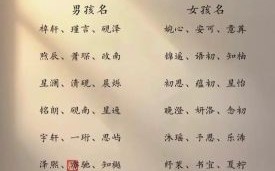 男孩名 女孩名
梓轩、瑾言、砚泽 婉心、安可、意苒
煦辰、萧琛、改南 锦遥、语初、知柚
星澜、清砚、晨烁 初思、蕴初、星怡
铭朗、砚南、星逸 晚澄、妍洛、念初
宇轩、一珩、思屿 沐瑶、予恩、乐涵
泽熙、驰、知樾 纾茉、书宜、夏柠